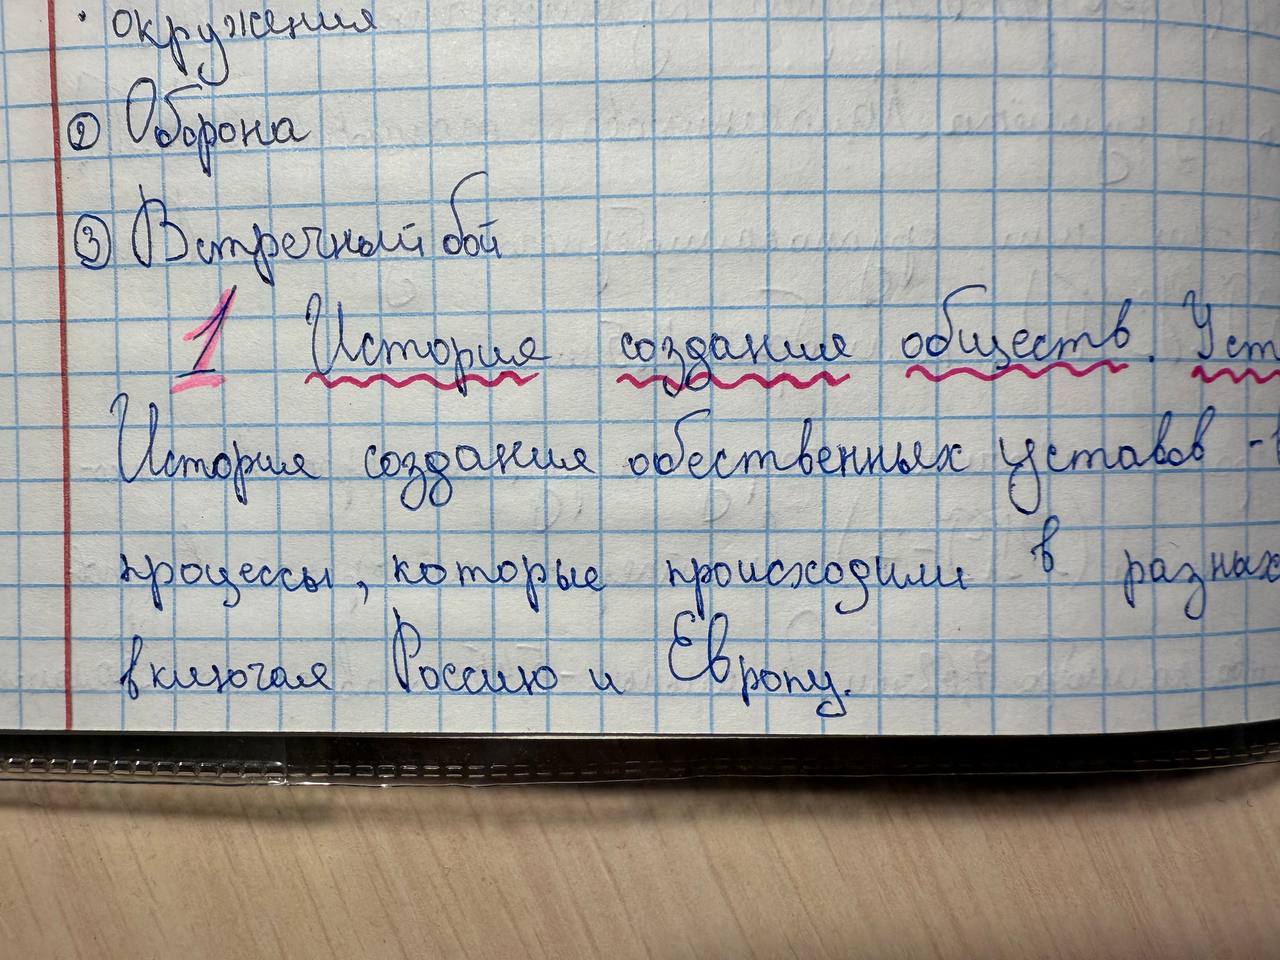 · окружения
② Оборона
③ Встречный бой
1 История создания обществ. Уст
История создания обественных уставов -
процессы, которые происходили в разных
включая Россию и Европу.